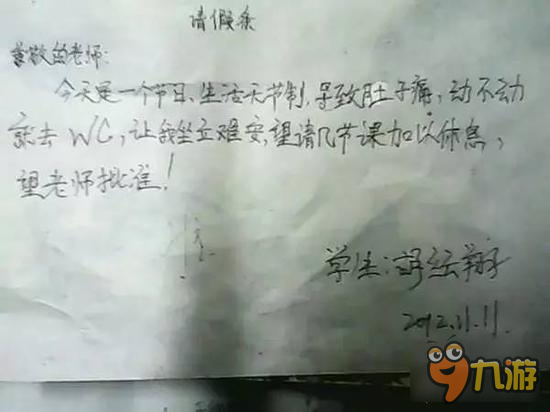 请假条
尊敬的老师:
今天是一个节日、生活无节制,导致肚子痛,动不动
就去WC,让我坐立难安,望请几节课加以休息,
望老师批准!
学生:
2012.11.11.
九游